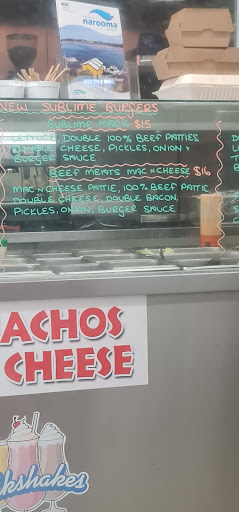 narooma
NEW SUBLIME BURGERS
SUBLIME MACK $15
LETTUCE, DOUBLE 100% BEEF PATTIES
DOUBLE CHEESE, PICKLES, ONION +
BURGER SAUCE
BEEF MEATS MAC N CHEESE $16
MAC N CHEESE PATTIE, 100% BEEF PATTIE
DOUBLE CHEESE, DOUBLE BACON,
PICKLES, ONION, BURGER SAUCE
ACHOS
CHEESE
kshakes